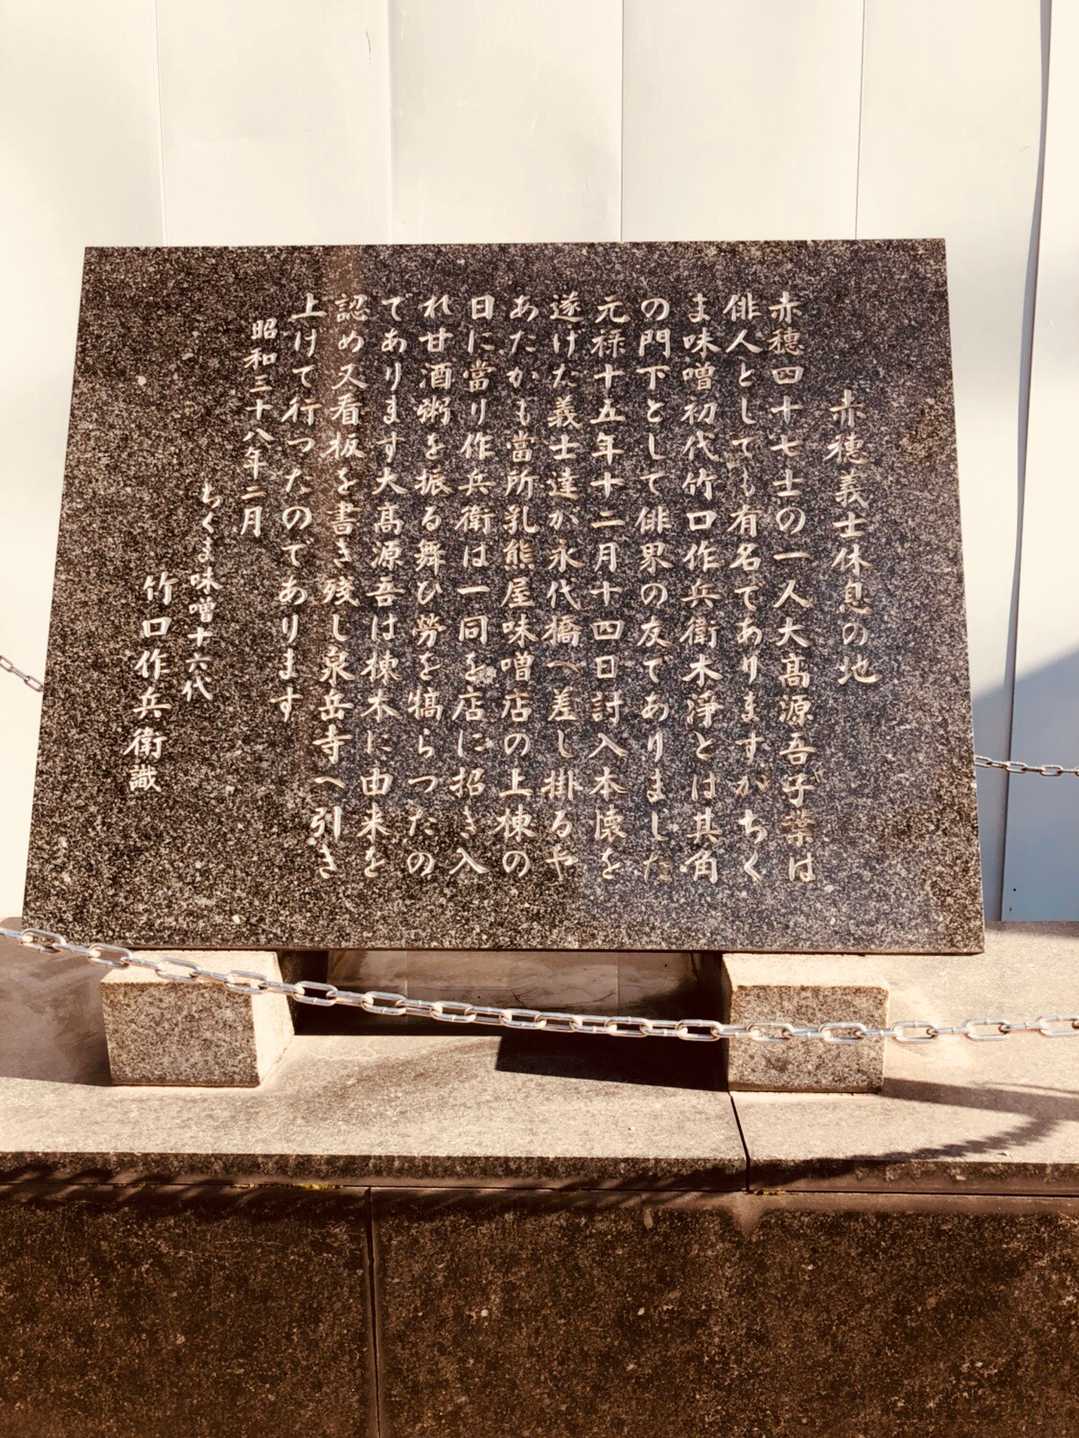 赤穂義士休息の地
赤穂四十七士の一人大高源吾子葉は
俳人としても有名でありますがちく
ま味噌初代竹口作兵衛木浄とは其角
の門下として俳界の友でありました
元禄十五年十二月十四日討入本懐を
遂げた義士達が永代橋へ差し掛るや
あたかも當所乳熊屋味噌店の上棟の
日に當り作兵衛は一同を店に招き入
れ甘酒粥を振る舞ひ労を犒らつたの
であります大髙源吾は棟木に由来を
認め又看板を書き残し泉岳寺へ引き
上げて行つたのであります
昭和三十八年二月
ちくま味噌十六代
竹口作兵衛識